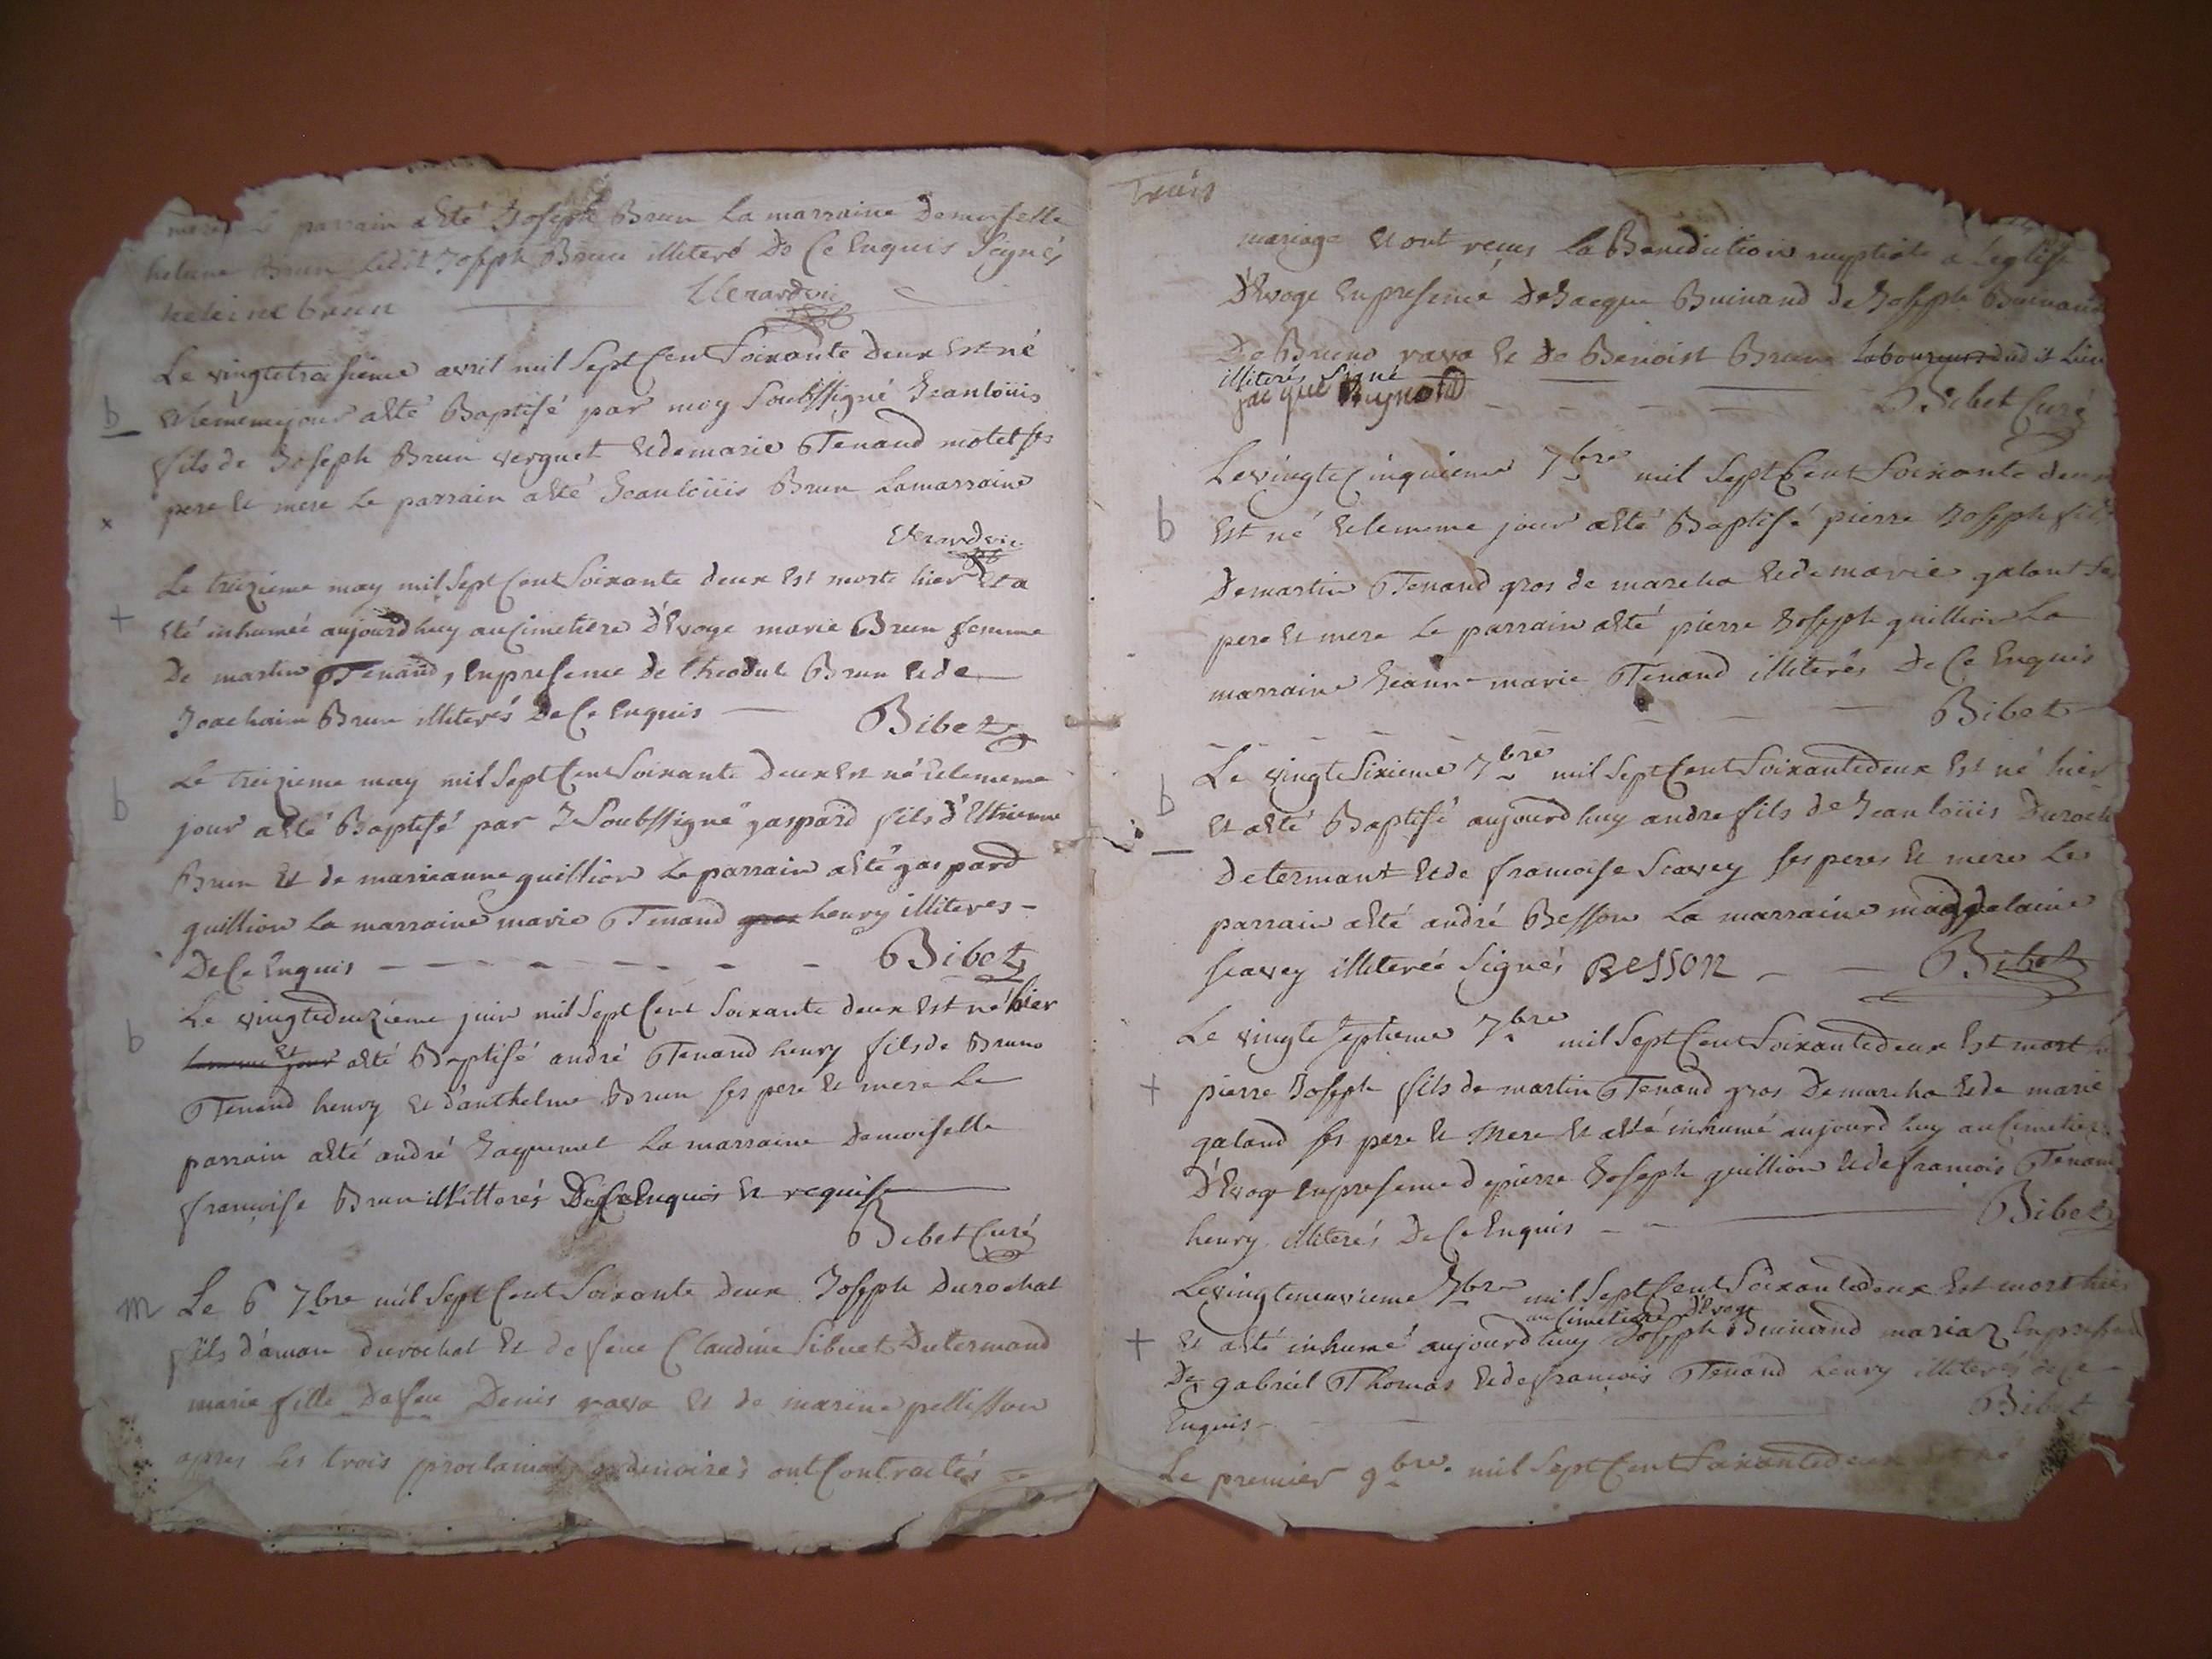 parrain a été Joseph Brun La marraine Demoiselle
helene Brun Ledit Joseph Brun illiteré De Ce Enquis Signés
heleine brun
Le vingtetroisieme avril mil Sept Cent Soixante deux Est né
b
Et lememe jour a été Baptisé par moy Soubssigné Jeanloüis
fils de Joseph Brun verguet Et de marie Tenand motet ses
x
pere Et mere Le parrain a été Jeanloüis Brun La marraine
Le treizieme may mil Sept Cent Soixante deux Est morte hier Et a
+
Eté inhumée aujourdhuy au Cimetiere D'Evoge marie Brun femme
De martin Tenand, En presence De theodule Brun Et de
Joachaim Brun illiterés De Ce Enquis
Bibet
Le treizieme may mil Sept Cent Soixante deux Est né Et lememe
b
jour a été Baptisé par J Soubssigné gaspard fils d'Ettienne
Brun Et de marieanne guillion Le parrain a été gaspard
guillion La marraine marie Tenand henry illiteres
De Ce Enquis
Bibet
Le vingtedeuzième juin mil Sept Cent Soixante deux Est né hier
b
Et a été Baptisé andré Tenand henry fils de Bruno
Tenand henry Et d'anthelme Brun ses pere Et mere Le
parrain a été andré Jaquemet La marraine Demoiselle
françoise Brun illitterés De Ce Enquis Et requise
Bibet Curé
m
Le 6 7bre mil Sept Cent Soixante deux Joseph Durochat
fils d'aman durochat Et de feue Claudine Sibuet Determand
marie fille De feu Denis rava Et de marine pellisson
apres Les trois ont Contractés
Trois
mariage Et ont reçus La Benediction nuptiale a L'eglise
D'Evoge En presence De Jacque Buinand de Joseph Buinand
De Bruno rava Et De Benoist Brun Laboureurs dudit Lieu
illiterés Signé
jacque
Bibet Curé
Le vingte Cinquieme 7bre mil Sept Cent Soixante deux
b
Est né Et lememe jour a été Baptisé pierre Joseph fils
De martin Tenand gros de mareha Et de marie galant Ses
pere Et mere Le parrain a été pierre Joseph guillion La
marraine Jeanne marie Tenand illiterés De Ce Enquis
Bibet
Le vingte Sixieme 7bre mil Sept Cent Soixantedeux Est né hier
b
Et a été Baptisé aujourdhuy andre fils de Jeanloüis Duroch
Determant Et de francoise Scavey ses peres Et mere Le
parrain a été andré Besson La marraine magdalaine
Scavey illiterée Signés BESSON
Bibet
Le vingte Septieme 7bre mil Sept Cent Soixantedeux Est mort
+
pierre Joseph fils de martin Tenand gros De mareha Et de marie
galand ses pere Et mere Et a été inhumé aujourdhuy au Cimetiere
D'Evoge En presence de pierre Joseph guillion Et de francois Tenand
henry illiterés De Ce Enquis
Bibet
Le vingteneuvieme 7bre mil Sept Cent Soixantedeux Est mort hier
au Cimetiere d'Evoge
+
Et a été inhumé aujourdhuy Joseph Buinand mariaz En presence
De gabriel Thomas Et de françois Tenand henry illiterés de Ce
Enquis
Bibet
Le premier 9bre mil Sept Cent Soixantedeux est né